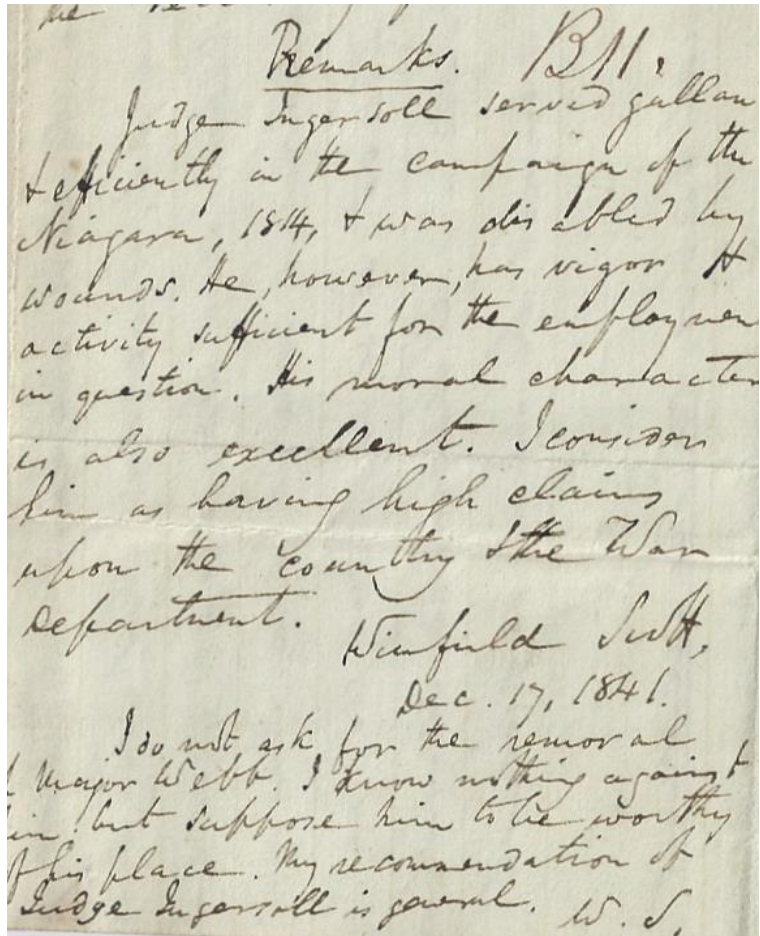 the
Remarks. B11.
Judge Ingersoll served gallan
& efficiently in the campaign of the
Niagara, 1814, & was disabled by
wounds. He, however, has vigor &
activity sufficient for the employmen
in question. His moral character
is also excellent. I consider
him as having high claims
upon the country & the War
Department.
Winfield Scott,
Dec. 17, 1841.
I do not ask for the removal
Major Webb. I know nothing against
him but suppose him to be worthy
of his place. My recommendation of
Judge Ingersoll is general. W. S.